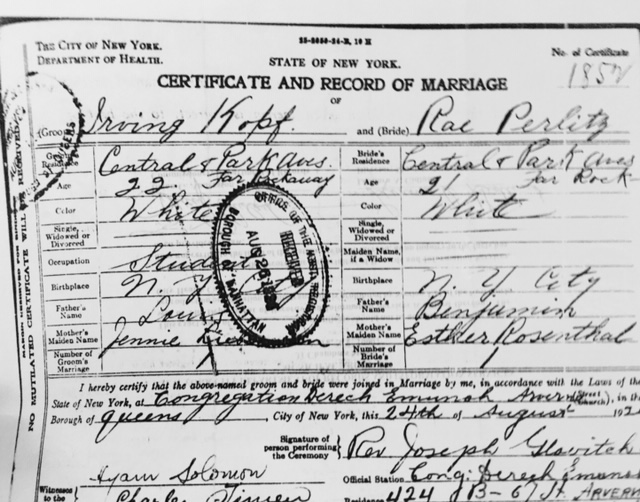 25-2050-24-B, 10 H
THE CITY OF NEW YORK.
DEPARTMENT OF HEALTH.
STATE OF NEW YORK.
No. of Certificate
1852
CERTIFICATE AND RECORD OF MARRIAGE
OF
(Groom) Irving Kopf and (Bride) Rae Perlitz
Residence Central & Park Aves. Far Rockaway Bride's Residence Central & Park Aves Far Rock
Age 22 Age 21
Color White Color White
Single, Widowed or Divorced Single, Widowed or Divorced
Occupation Student Maiden Name, if a Widow
Birthplace N. Y. City Birthplace N. Y City
Father's Name Louis Father's Name Benjamin
Mother's Maiden Name Jennie Mother's Maiden Name Esther Rosenthal
Number of Groom's Marriage 1 Number of Bride's Marriage 1
OFFICE OF THE
RECEIVED
AUG 26
BOROUGH OF MANHATTAN
NO MUTILATED CERTIFICATE WILL BE RECEIVED
I hereby certify that the above-named groom and bride were joined in Marriage by me, in accordance with the Laws of the
State of New York, at Congregation Derech Emunah Arverne (Street Church), in the
Borough of Queens City of New York, this 24th of August 192
Signature of person performing the Ceremony Rev Joseph
Solomon Official Station Cong. Derech Emuna
Witnesses to Charles Residence 424 ARVER